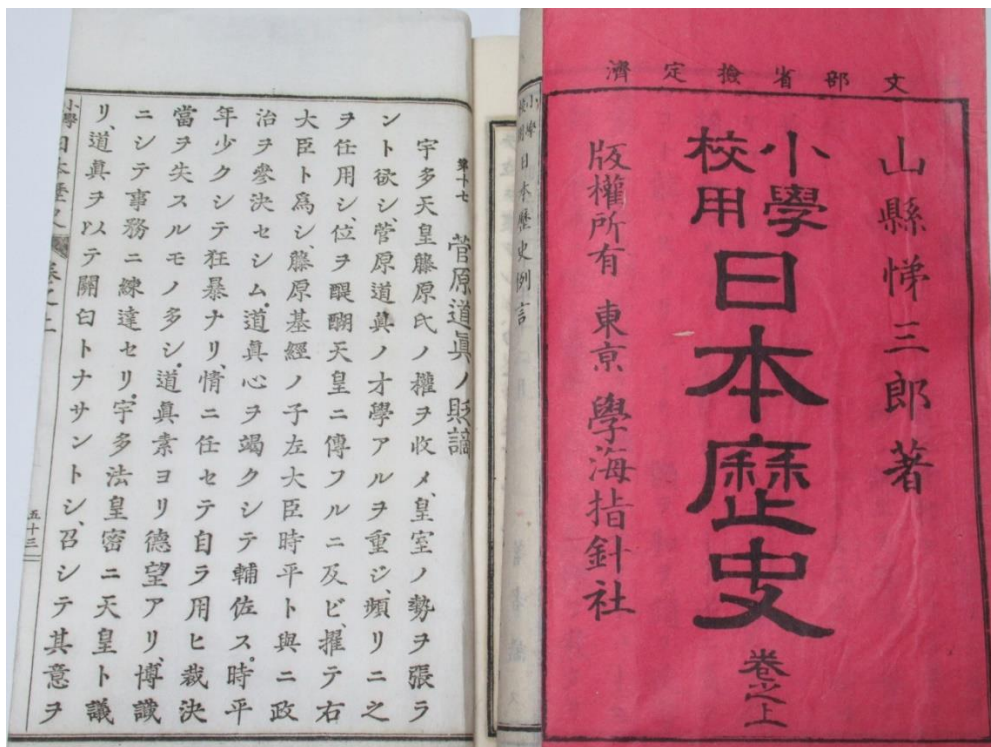 文部省檢定濟
山縣悌三郎著
小學校用
日本歷史
卷之上
版權所有 東京 學海指針社
小學校用日本歷史例言
第十七 菅原道眞ノ貶謫
宇多天皇藤原氏ノ權ヲ收メ、皇室ノ勢ヲ張ラ
ント欲シ、菅原道眞ノ才學アルヲ重ジ、頻リニ之
ヲ仕用シ、位ヲ醍醐天皇ニ傳フルニ反ビ、擢テ右
大臣ト爲シ、藤原基經ノ子左大臣時平ト與ニ政
治ヲ參決セシム。道眞心ヲ竭クシテ輔佐ス。時平
年少クシテ狂暴ナリ、情ニ任セテ自ラ用ヒ裁決
當ヲ失スルモノ多シ。道眞素ヨリ德望アリ、博識
ニシテ事務ニ練達セリ。宇多法皇密ニ天皇ト議
リ、道眞ヲ以テ關白トナサントシ、召シテ其意ヲ
小學日本歷史 卷之二 五十三